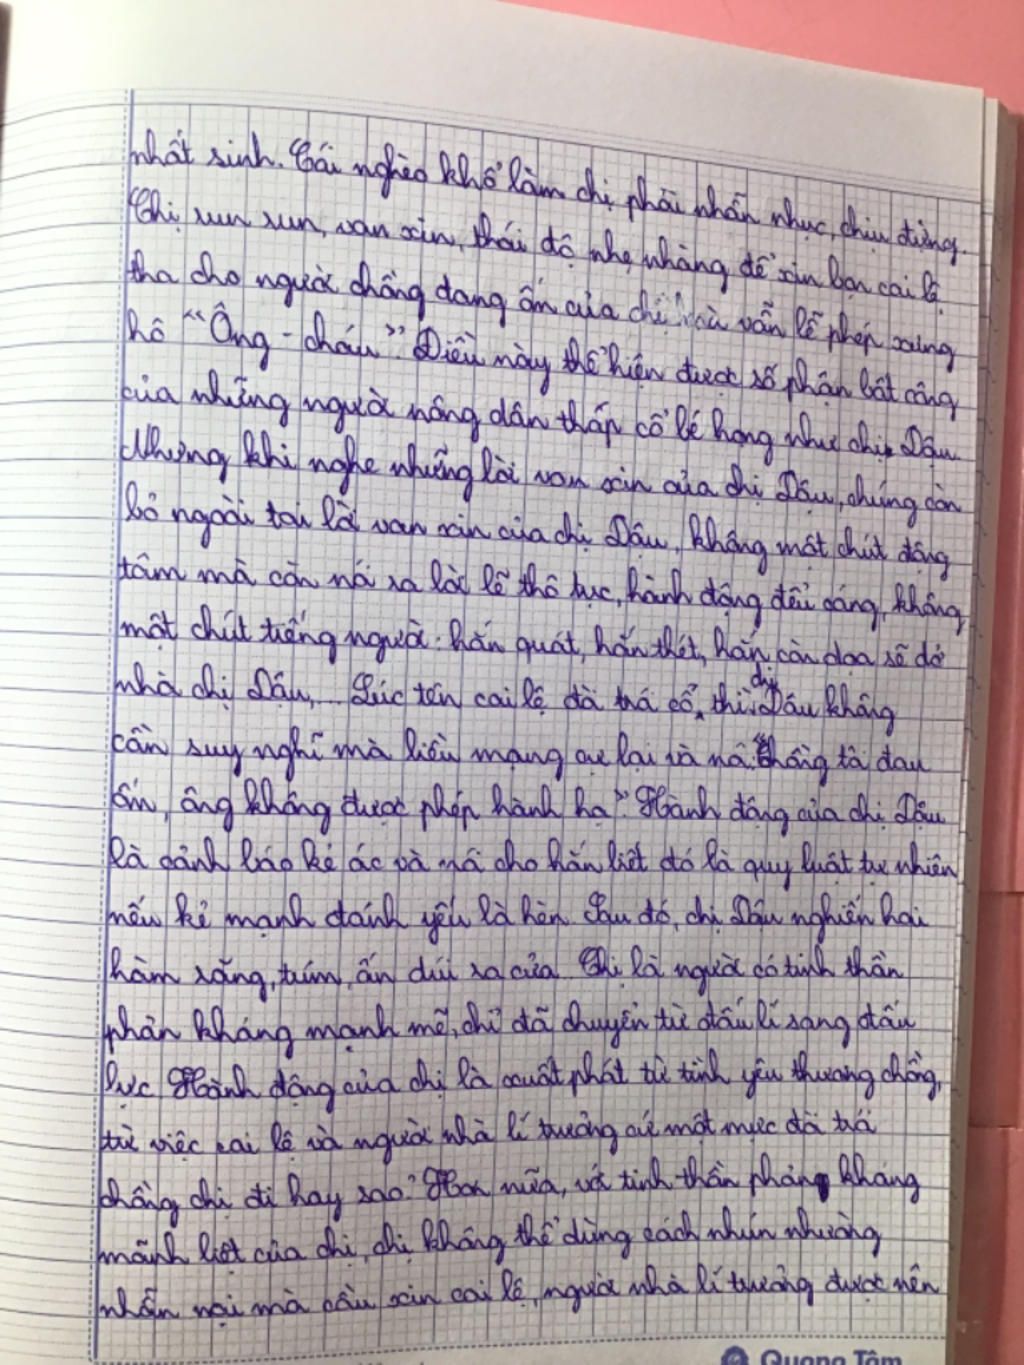 nhất sinh. Cái nghèo khổ làm chị phải nhẫn nhục, chịu đựng.
Chị run run, van xin, thái độ nhẹ nhàng để xin bọn cai lệ
tha cho người chồng đang ốm của chị và vẫn lễ phép xưng
hô "Ông - cháu". Điều này thể hiện được số phận bất công
của những người nông dân thấp cổ bé họng như chị Dậu.
Nhưng khi nghe những lời van xin của chị Dậu, chúng còn
bỏ ngoài tai lời van xin của chị Dậu, không một chút động
tâm mà còn nói ra lời lẽ thô tục, hành động đểu cáng, không
một chút tiếng người: hắn quát, hắn thét, hắn còn dọa sẽ dỡ
nhà chị Dậu,... Lúc tên cai lệ đã trá cổ, thì chị Dậu không
cần suy nghĩ mà liều mạng cự lại và nói: "Chồng tôi đau
ốm, ông không được phép hành hạ". Hành động của chị Dậu
là cảnh báo kẻ ác và nói cho hắn biết đó là quy luật tự nhiên
nếu kẻ mạnh đánh yếu là hèn. Sau đó, chị Dậu nghiến hai
hàm răng, túm, ấn dúi ra cửa. Chị là người có tinh thần
phản kháng mạnh mẽ, chỉ đã chuyển từ đấu lí sang đấu
lực. Hành động của chị là xuất phát từ tình yêu thương chồng,
từ việc cai lệ và người nhà lí trưởng cứ một mực đòi trói
chồng chị đi hay sao? Hơn nữa, với tinh thần phản kháng
mãnh liệt của chị, chị không thể dùng cách nhún nhường
nhẫn nại mà cầu xin cai lệ, người nhà lí trưởng được nên
Quang Tâm